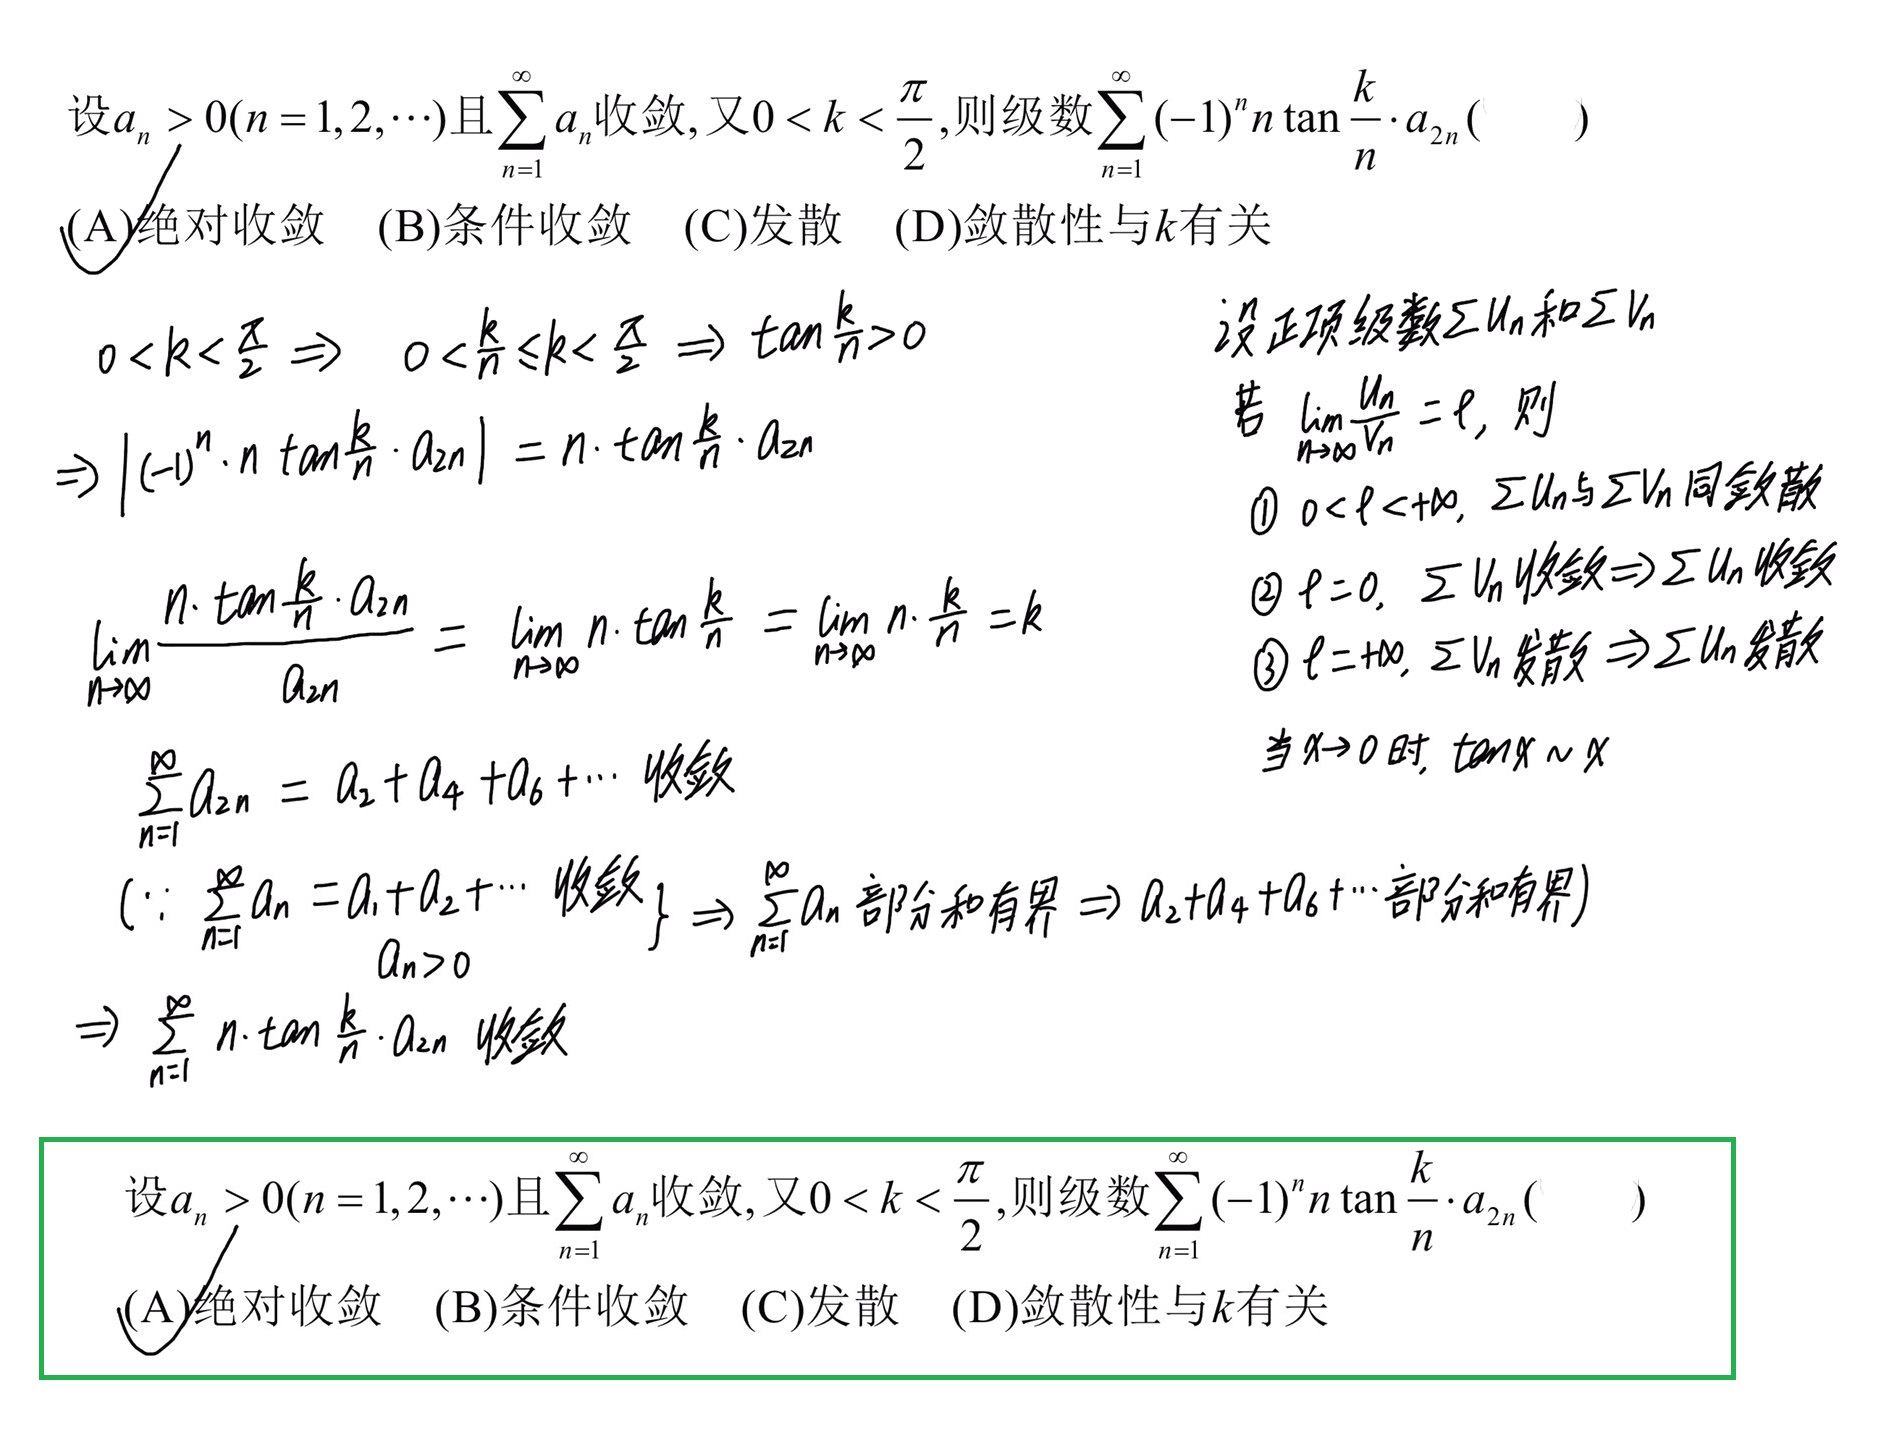 设aₙ > 0(n = 1, 2, ⋯)且∑_{n=1}^{∞} aₙ收敛, 又0 < k < π/2, 则级数∑_{n=1}^{∞} (−1)ⁿ n tan k/n · a₂ₙ (  )
(A)绝对收敛 (B)条件收敛 (C)发散 (D)敛散性与k有关
0 < k < π/2 ⇒ 0 < k/n ≤ k < π/2 ⇒ tan k/n > 0
⇒ |(−1)ⁿ · n tan k/n · a₂ₙ| = n · tan k/n · a₂ₙ
lim_{n→∞} (n · tan k/n · a₂ₙ)/a₂ₙ = lim_{n→∞} n · tan k/n = lim_{n→∞} n · k/n = k
∑_{n=1}^{∞} a₂ₙ = a₂ + a₄ + a₆ + ⋯ 收敛
(∵ ∑_{n=1}^{∞} aₙ = a₁ + a₂ + ⋯ 收敛 } ⇒ ∑_{n=1}^{∞} aₙ 部分和有界 ⇒ a₂ + a₄ + a₆ + ⋯ 部分和有界)
aₙ > 0
⇒ ∑_{n=1}^{∞} n · tan k/n · a₂ₙ 收敛
设正项级数∑Uₙ和∑Vₙ
若 lim_{n→∞} Uₙ/Vₙ = ℓ, 则
① 0 < ℓ < +∞, ∑Uₙ与∑Vₙ同敛散
② ℓ = 0, ∑Vₙ收敛 ⇒ ∑Uₙ收敛
③ ℓ = +∞, ∑Vₙ发散 ⇒ ∑Uₙ发散
当x→0时, tanx ~ x
设aₙ > 0(n = 1, 2, ⋯)且∑_{n=1}^{∞} aₙ收敛, 又0 < k < π/2, 则级数∑_{n=1}^{∞} (−1)ⁿ n tan k/n · a₂ₙ (  )
(A)绝对收敛 (B)条件收敛 (C)发散 (D)敛散性与k有关